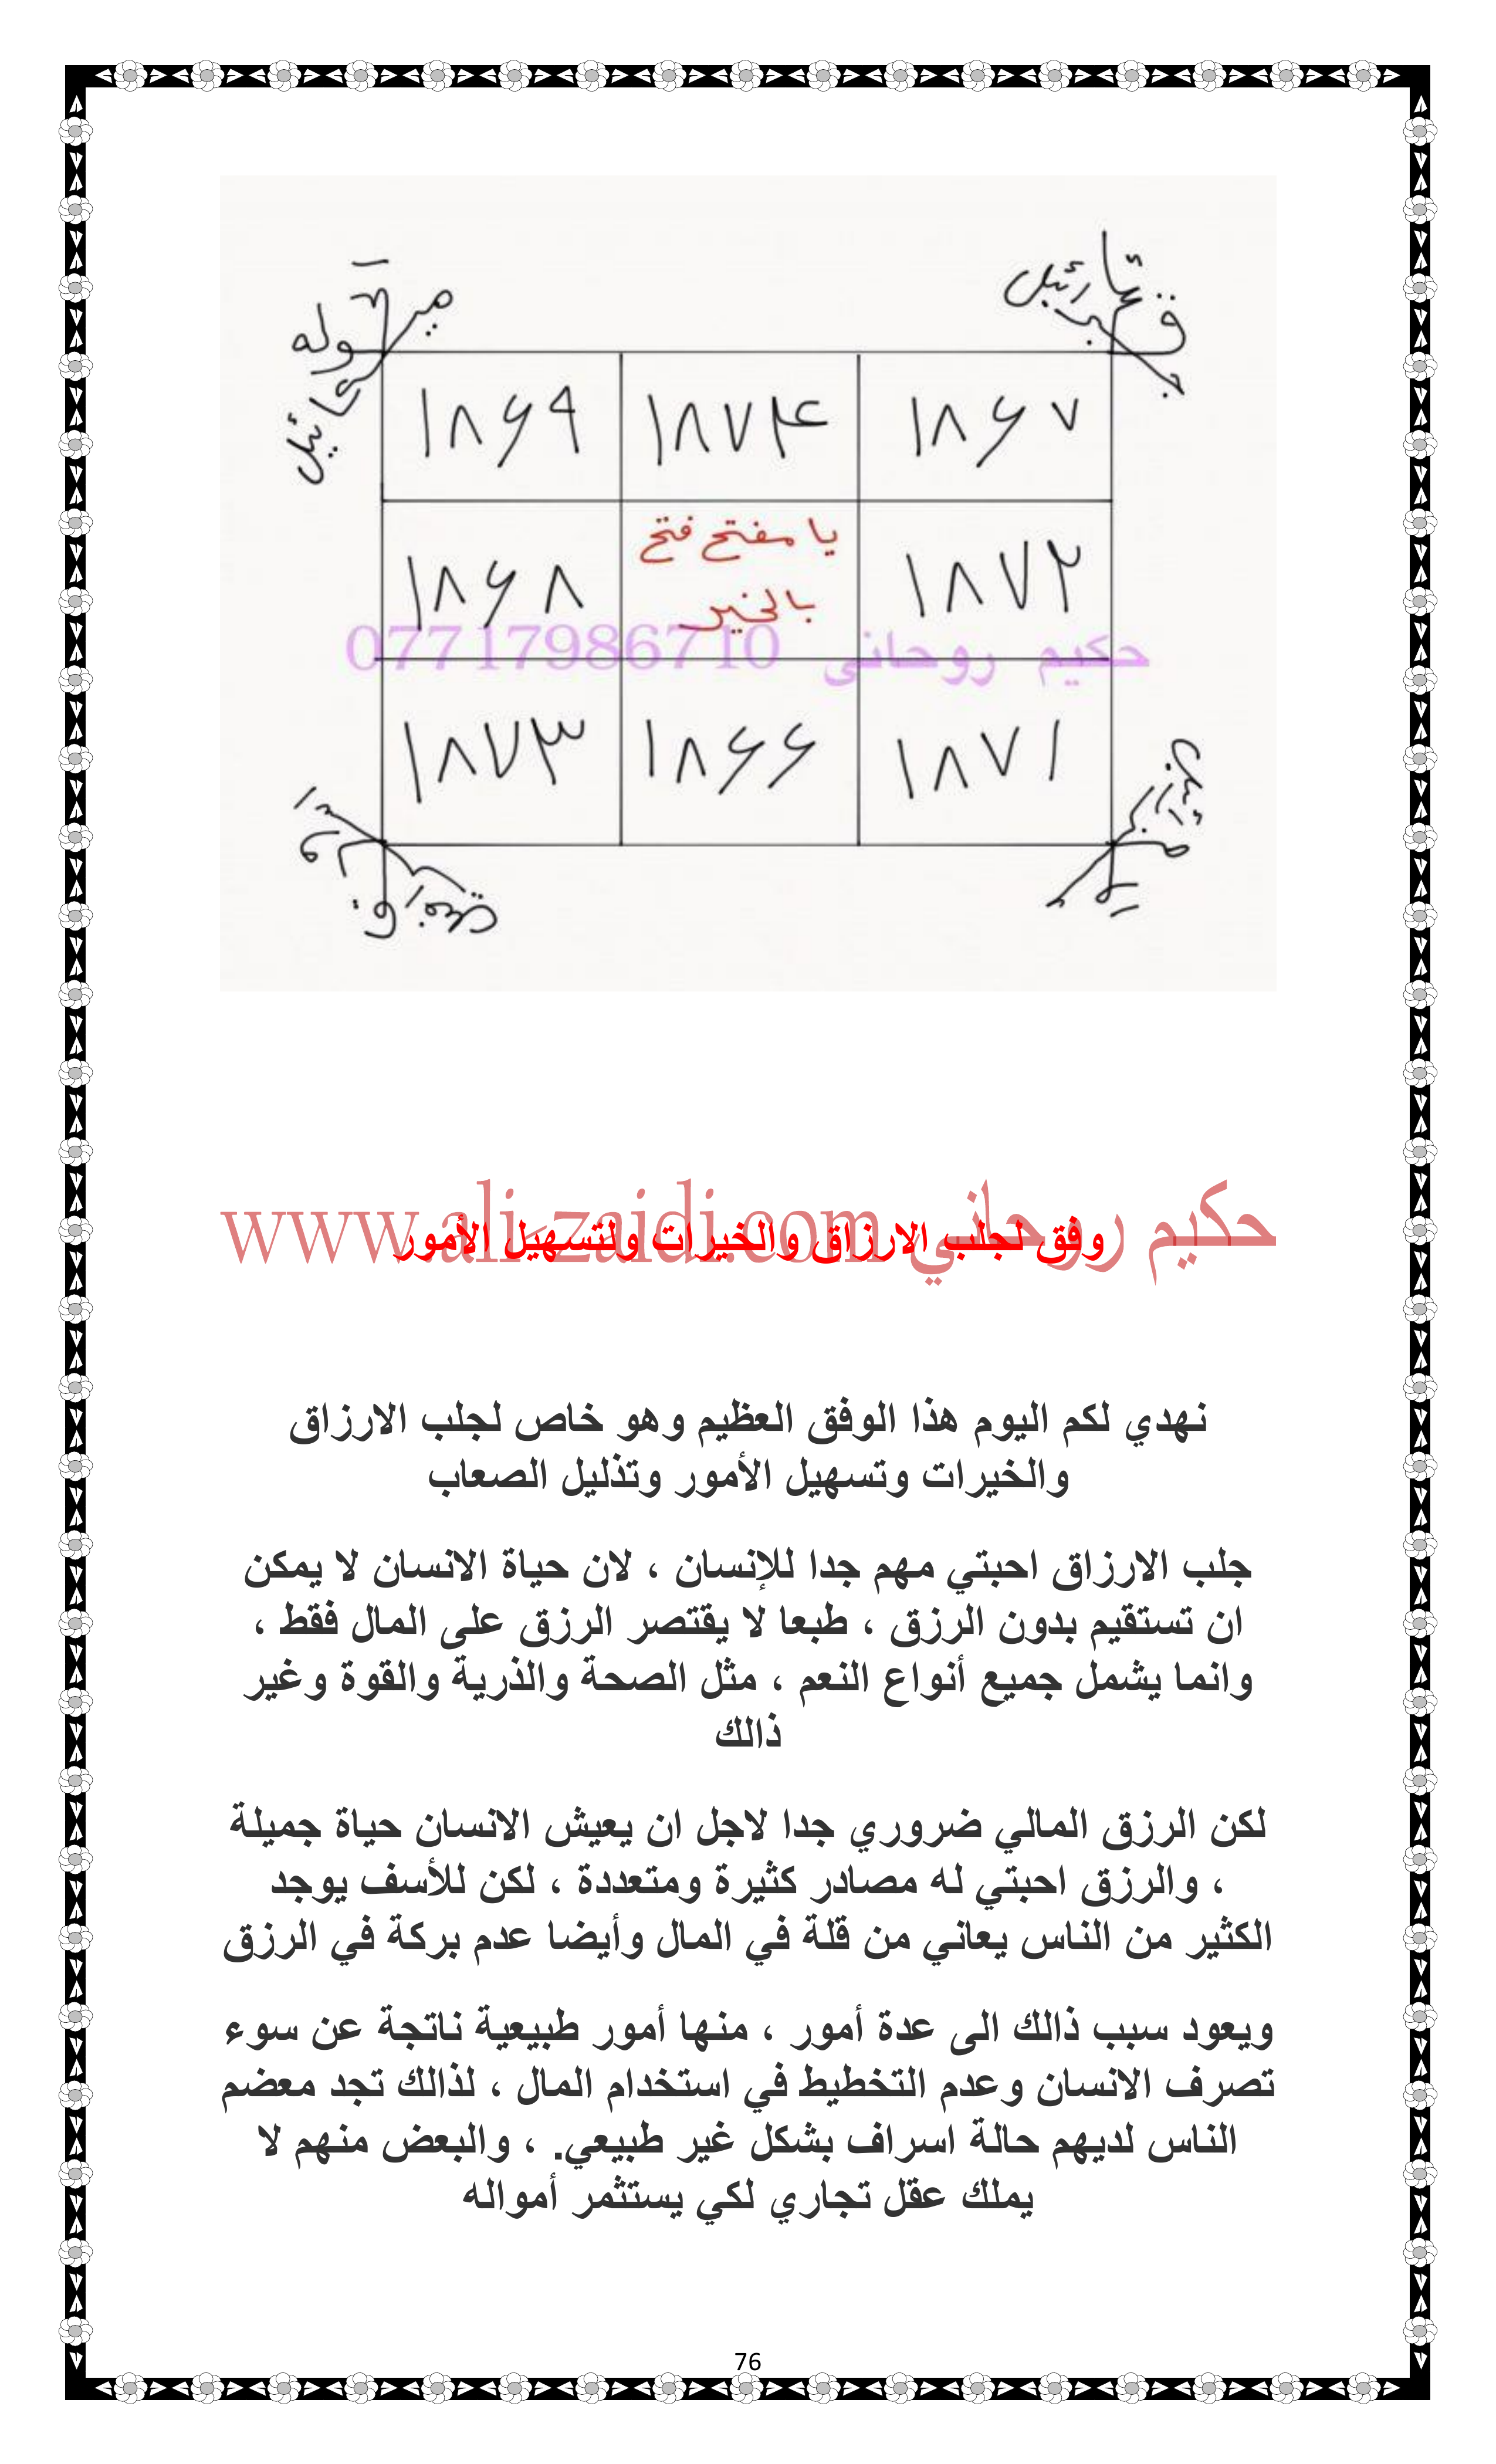 قوله
ميكائيل
جبرائيل
١٨٦٩ ١٨٧۴ ١٨٦٧
١٨٦٨ يا مفتح فتح بالخير ١٨٧٢
حكيم روحاني 07717986710
١٨٧٣ ١٨٦٦ ١٨٧١
حكيم روحاني www.ali-zaidi.com
وفق لجلب الارزاق والخيرات ولتسهيل الأمور
نهدي لكم اليوم هذا الوفق العظيم وهو خاص لجلب الارزاق
والخيرات وتسهيل الأمور وتذليل الصعاب
جلب الارزاق احبتي مهم جدا للإنسان ، لان حياة الانسان لا يمكن
ان تستقيم بدون الرزق ، طبعا لا يقتصر الرزق على المال فقط ،
وانما يشمل جميع أنواع النعم ، مثل الصحة والذرية والقوة وغير
ذالك
لكن الرزق المالي ضروري جدا لاجل ان يعيش الانسان حياة جميلة
، والرزق احبتي له مصادر كثيرة ومتعددة ، لكن للأسف يوجد
الكثير من الناس يعاني من قلة في المال وأيضا عدم بركة في الرزق
ويعود سبب ذالك الى عدة أمور ، منها أمور طبيعية ناتجة عن سوء
تصرف الانسان وعدم التخطيط في استخدام المال ، لذالك تجد معضم
الناس لديهم حالة اسراف بشكل غير طبيعي. ، والبعض منهم لا
يملك عقل تجاري لكي يستثمر أمواله
76